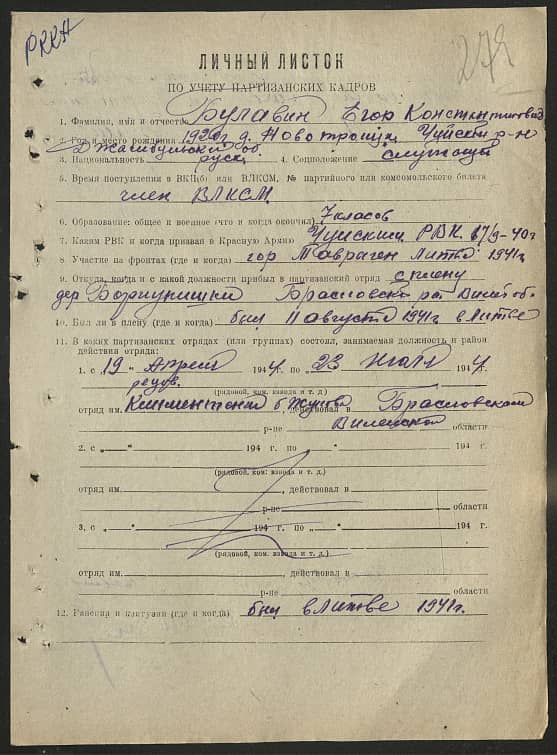 РККА
272
ЛИЧНЫЙ ЛИСТОК
ПО УЧЕТУ ПАРТИЗАНСКИХ КАДРОВ
1. Фамилия, имя и отчество Булавин Егор Константинович
2. Год и место рождения 1920г д. Новотроицк Чуйский р-н
Джамбульский об.
3. Национальность русск 4. Соцположение служащий
5. Время поступления в ВКП(б) или ВЛКСМ, № партийного или комсомольского билета
член ВЛКСМ
6. Образование: общее и военное (что и когда окончил) 7 класов
7. Каким РВК и когда призван в Красную Армию Чуйским РВК 17/9-40г
8. Участие на фронтах (где и когда) гор Таураген Литва 1941г
9. Откуда, когда и с какой должности прибыл в партизанский отряд с плену
дер Браславск
10. Был ли в плену (где и когда) был 11 августа 1941г. в Литве
11. В каких партизанских отрядах (или группах) состоял, занимаемая должность и район
действия отряда:
1. с 19 „ Апреля 1944г. по „ 23 Июля 1944 г.
рядов.
(рядовой, ком. взвода и т. д.)
отряд им. б Жукова, действовал в Браславском
р-не Вилейской области
2. с „ “ 194 г. по „ “ 194 г.
(рядовой, ком. взвода и т. д.)
отряд им. , действовал в
р-не области
3. с „ “ 194 г. по „ “ 194 г.
(рядовой, ком. взвода и т. д.)
отряд им. , действовал в
р-не области
12. Ранения и контузии (где и когда) был в Литве 1941г.